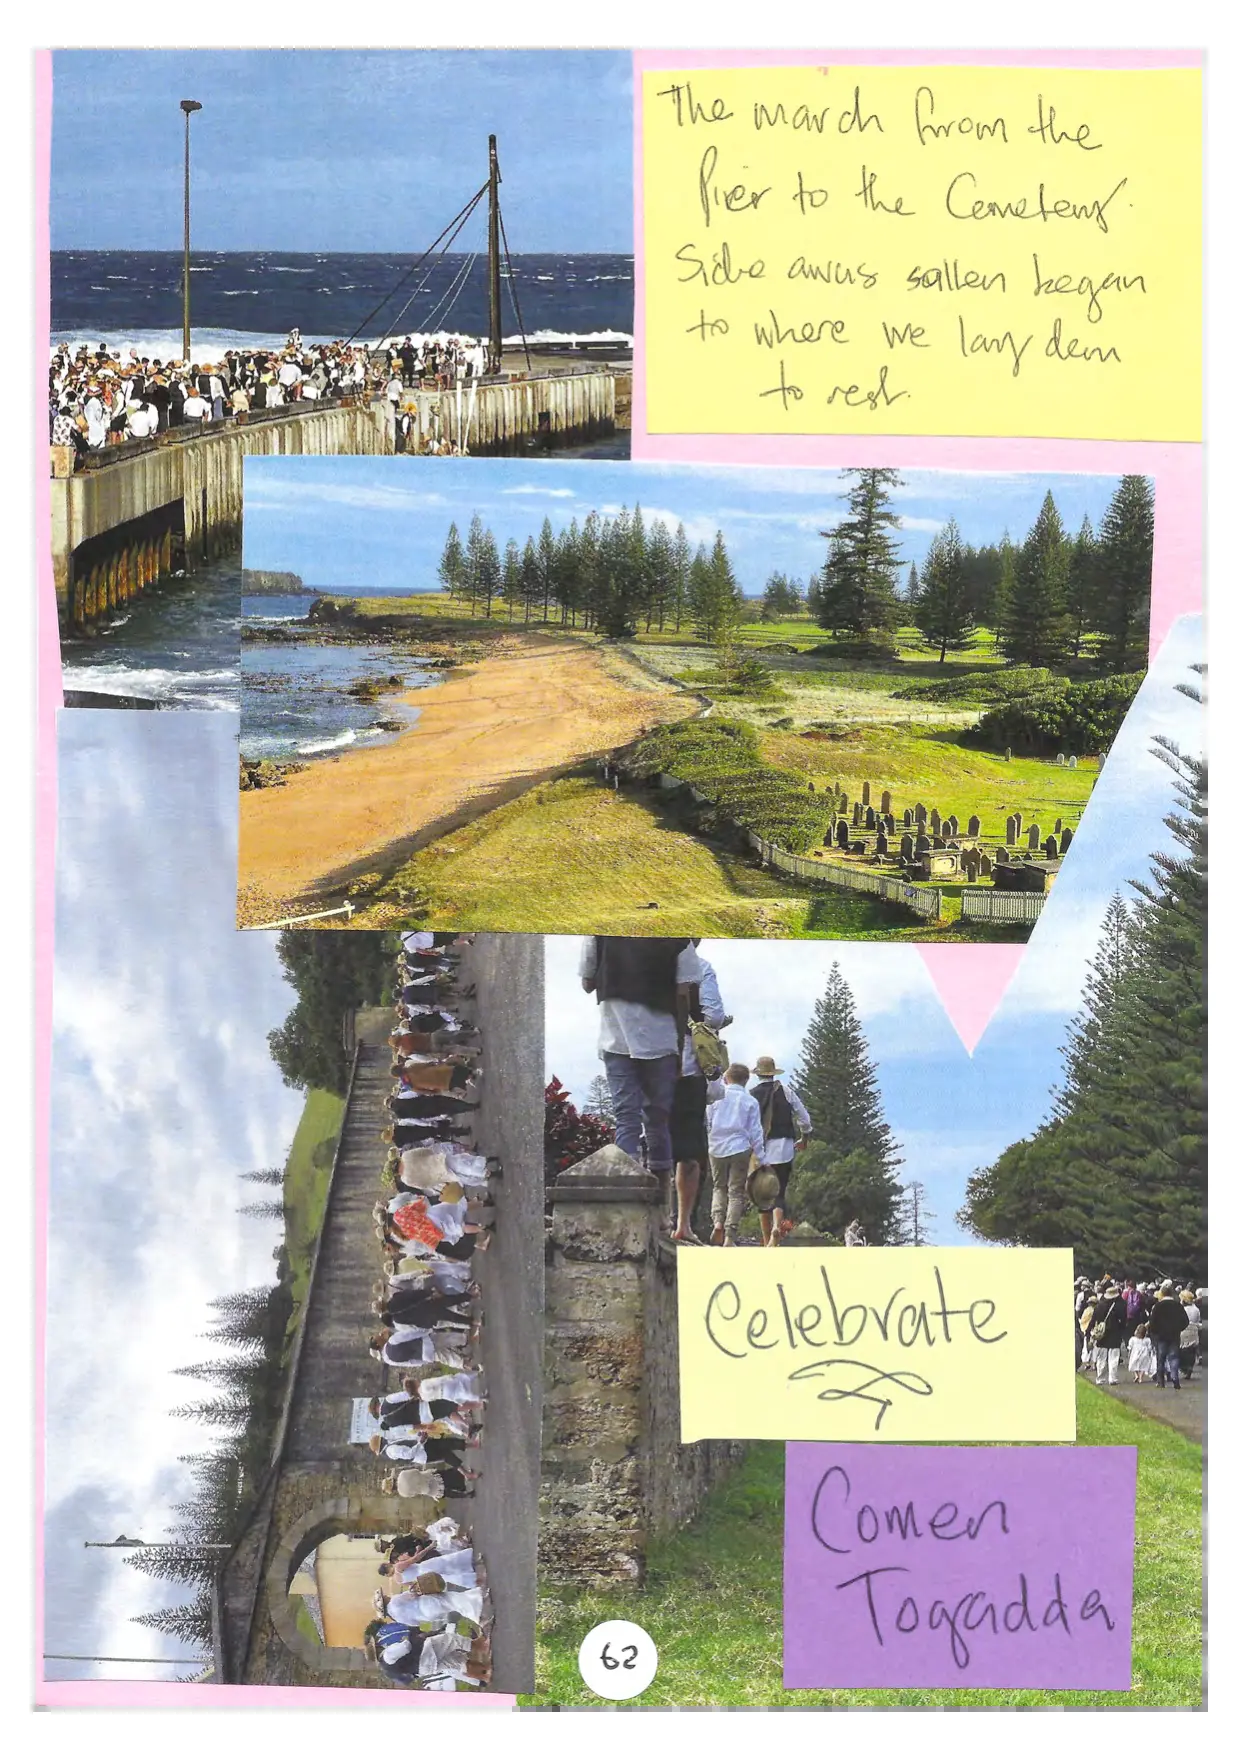 The march from the
Pier to the Cemetery.
Side awus sallen began
to where we lay dem
to rest.
Celebrate
Comen
Togadda
62